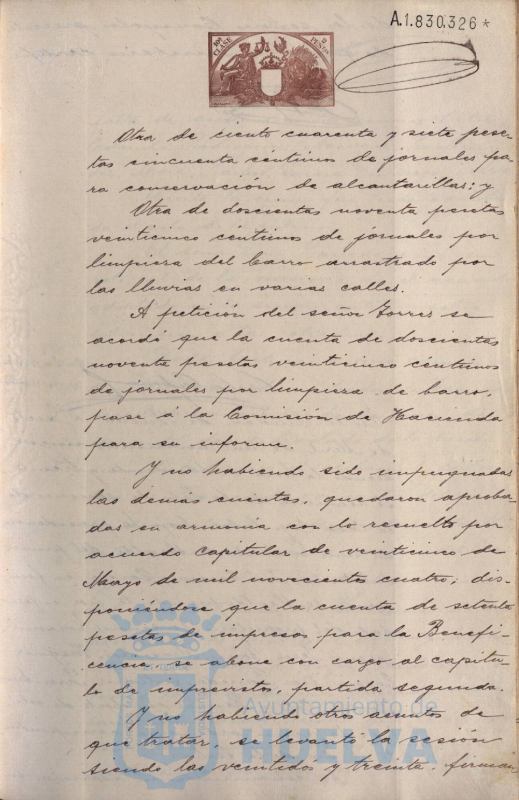 A.1.830.326 *
10ª CLASE
2 PESETAS
Otra de ciento cuarenta y siete pese-
tas cincuenta céntimos de jornales pa-
ra conservación de alcantarillas; y
Otra de doscientas noventa pesetas
veinticinco céntimos de jornales por
limpieza del barro arrastrado por
las lluvias en varias calles.
A petición del señor Torres se
acordó que la cuenta de doscientas
noventa pesetas veinticinco céntimos
de jornales por limpieza de barro,
pase á la Comisión de Hacienda
para su informe.
Y no habiendo sido impugnadas
las demás cuentas, quedaron aproba-
das en armonía con lo resuelto por
acuerdo capitular de veinticinco de
Mayo de mil novecientos cuatro; dis-
poniéndose que la cuenta de setenta
pesetas de impresos para la Benefi-
cencia, se abone con cargo al capítu-
lo de imprevistos, partida segunda.
Y no habiendo otros asuntos de
que tratar, se levantó la sesión
siendo las veintidós y treinta, firman
Ayuntamiento de
HUELVA